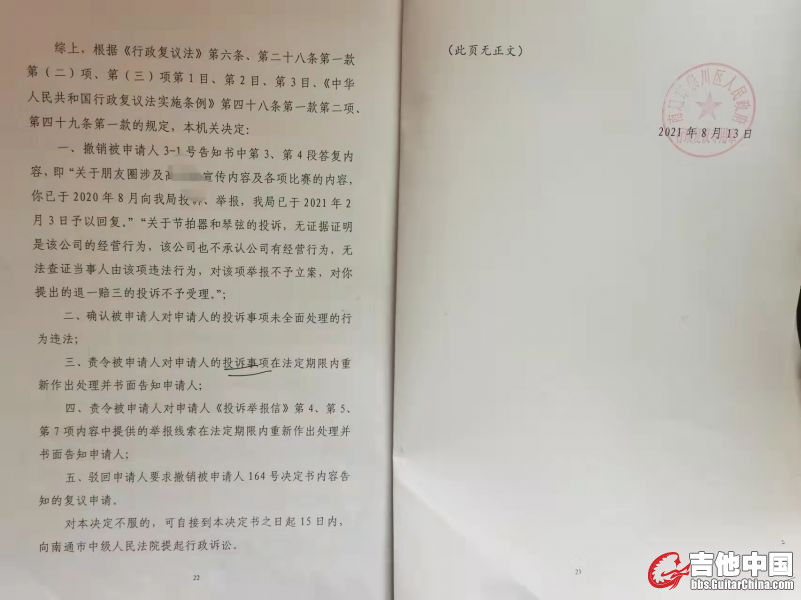 综上，根据《行政复议法》第六条、第二十八条第一款
第（二）项、第（三）项第1目、第2目、第3目、《中华
人民共和国行政复议法实施条例》第四十八条第一款第二项、
第四十九条第一款的规定，本机关决定：
一、撤销被申请人3-1号告知书中第3、第4段答复内
容，即“关于朋友圈涉及 宣传内容及各项比赛的内容，
你已于2020年8月向我局投诉、举报，我局已于2021年2
月3日予以回复。”“关于节拍器和琴弦的投诉，无证据证明
是该公司的经营行为，该公司也不承认公司有经营行为，无
法查证当事人由该项违法行为，对该项举报不予立案，对你
提出的退一赔三的投诉不予受理。”；
二、确认被申请人对申请人的投诉事项未全面处理的行
为违法；
三、责令被申请人对申请人的投诉事项在法定期限内重
新作出处理并书面告知申请人；
四、责令被申请人对申请人《投诉举报信》第4、第5、
第7项内容中提供的举报线索在法定期限内重新作出处理并
书面告知申请人；
五、驳回申请人要求撤销被申请人164号决定书内容告
知的复议申请。
对本决定不服的，可自接到本决定书之日起15日内，
向南通市中级人民法院提起行政诉讼。
22
（此页无正文）
川区人民政府
2021年8月13日
23
吉他中国
bbs.GuitarChina.com